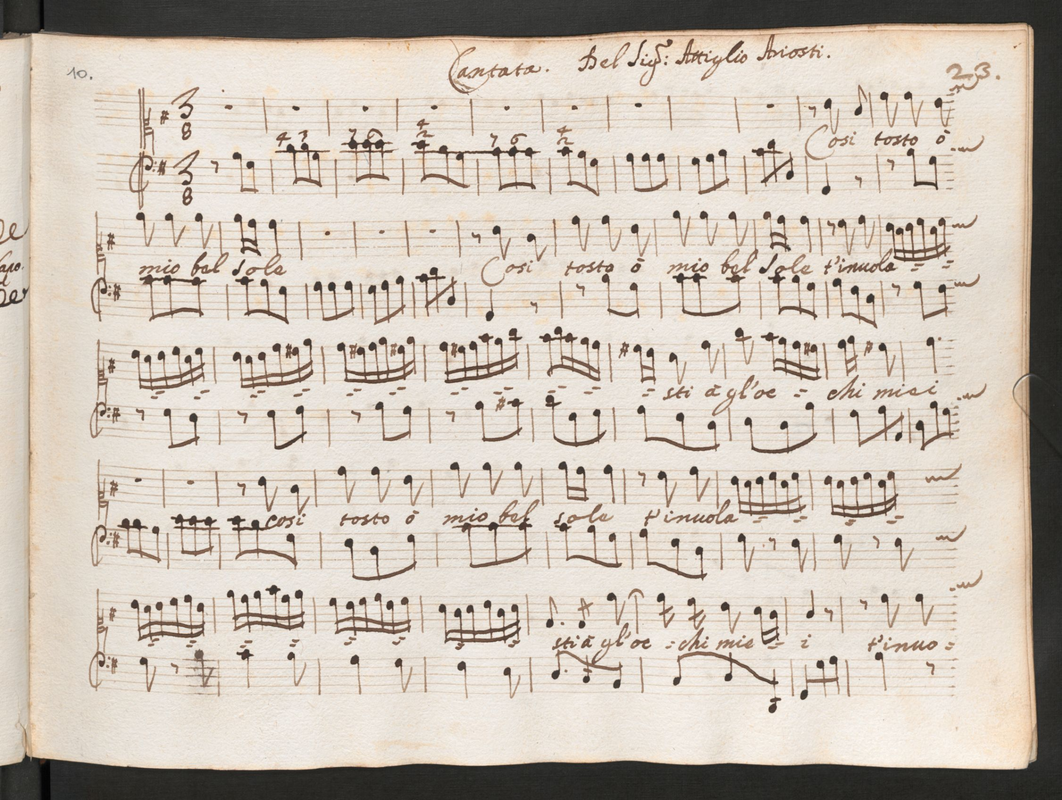 10.
Cantata. Del Sigr: Attiglio Ariosti.
23.
3 8
4 3 7 6 4 2 7 6 4 2
Cosi tosto ò
3 8
mio bel Sole Cosi tosto ò mio bel Sole t'inuola
sti à gl'oc - chi miei
cosi tosto ò mio bel sole t'inuola
sti à gl'oc - chi mie - i t'inuo =